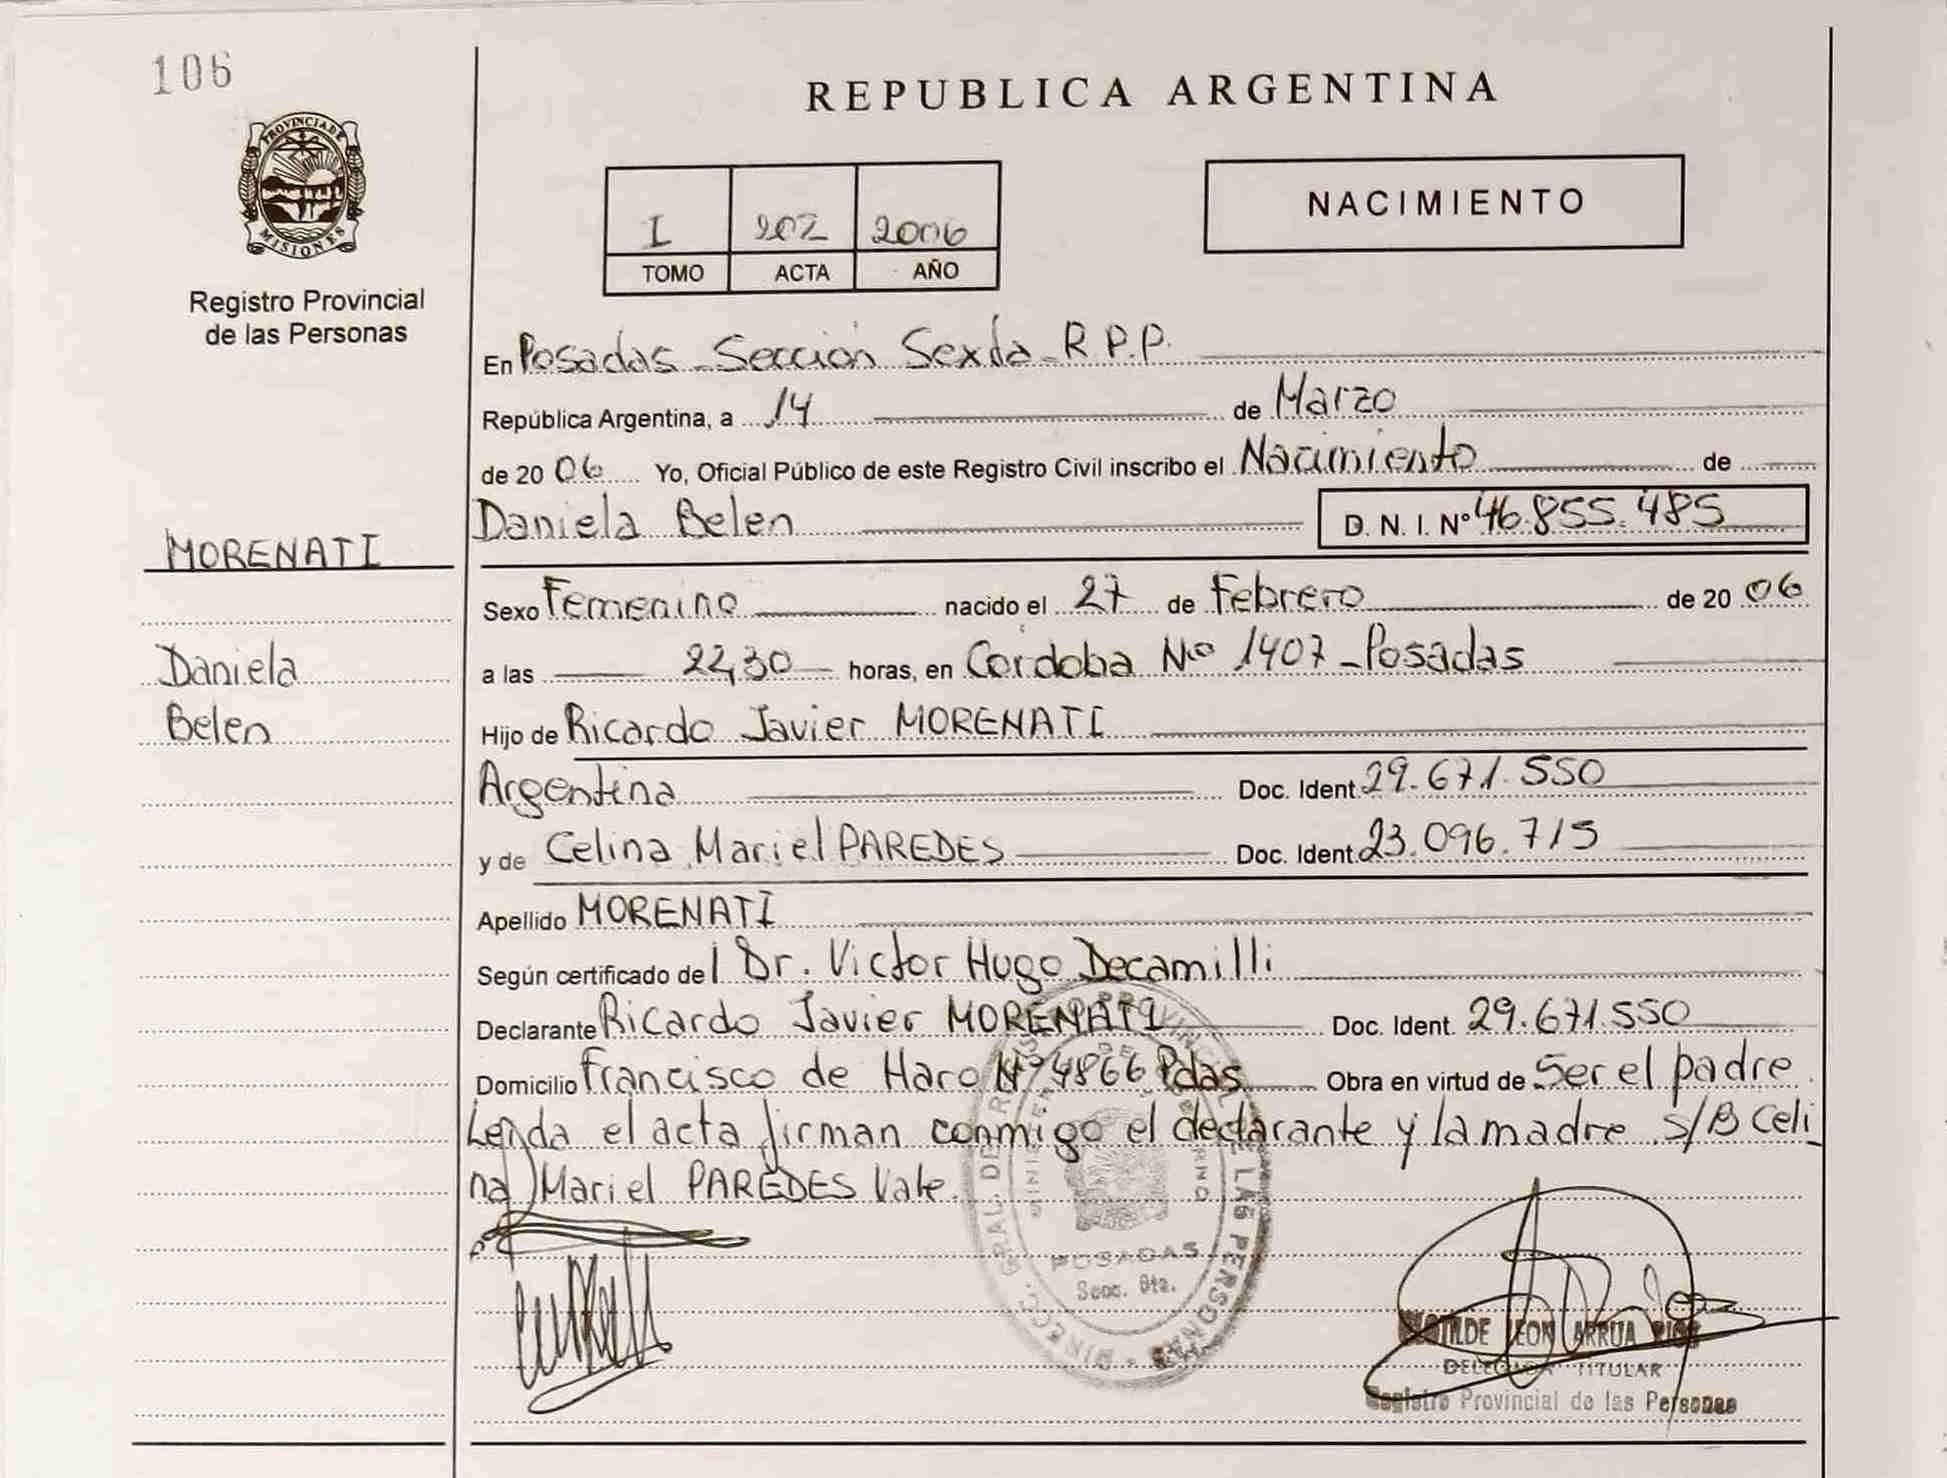 106
PROVINCIA DE
MISIONES
Registro Provincial
de las Personas
REPUBLICA ARGENTINA
I 202 2006
TOMO ACTA AÑO
NACIMIENTO
En Posadas - Sección Sexta - R.P.P.
República Argentina, a 14 de Marzo
de 20 06 Yo, Oficial Público de este Registro Civil inscribo el Nacimiento de
Daniela Belen D. N. I. Nº 46.855.485
MORENATI
Sexo Femenino nacido el 27 de Febrero de 20 06
Daniela
a las 22,30 horas, en Cordoba Nº 1407 - Posadas
Belen
Hijo de Ricardo Javier MORENATI
Argentina Doc. Ident. 29.671.550
y de Celina Mariel PAREDES Doc. Ident. 23.096.715
Apellido MORENATI
Según certificado del Dr. Victor Hugo Decamilli
Declarante Ricardo Javier MORENATI Doc. Ident. 29.671.550
Domicilio Francisco de Haro Nº 4866 Pdas Obra en virtud de Ser el padre.
Leida el acta firman conmigo el declarante y la madre s/B Celi
na Mariel PAREDES Vale.
POSADAS
Secc. 6ta.
CLOTILDE LEON ARRUA RIOS
DELEGADA TITULAR
Registro Provincial de las Personas